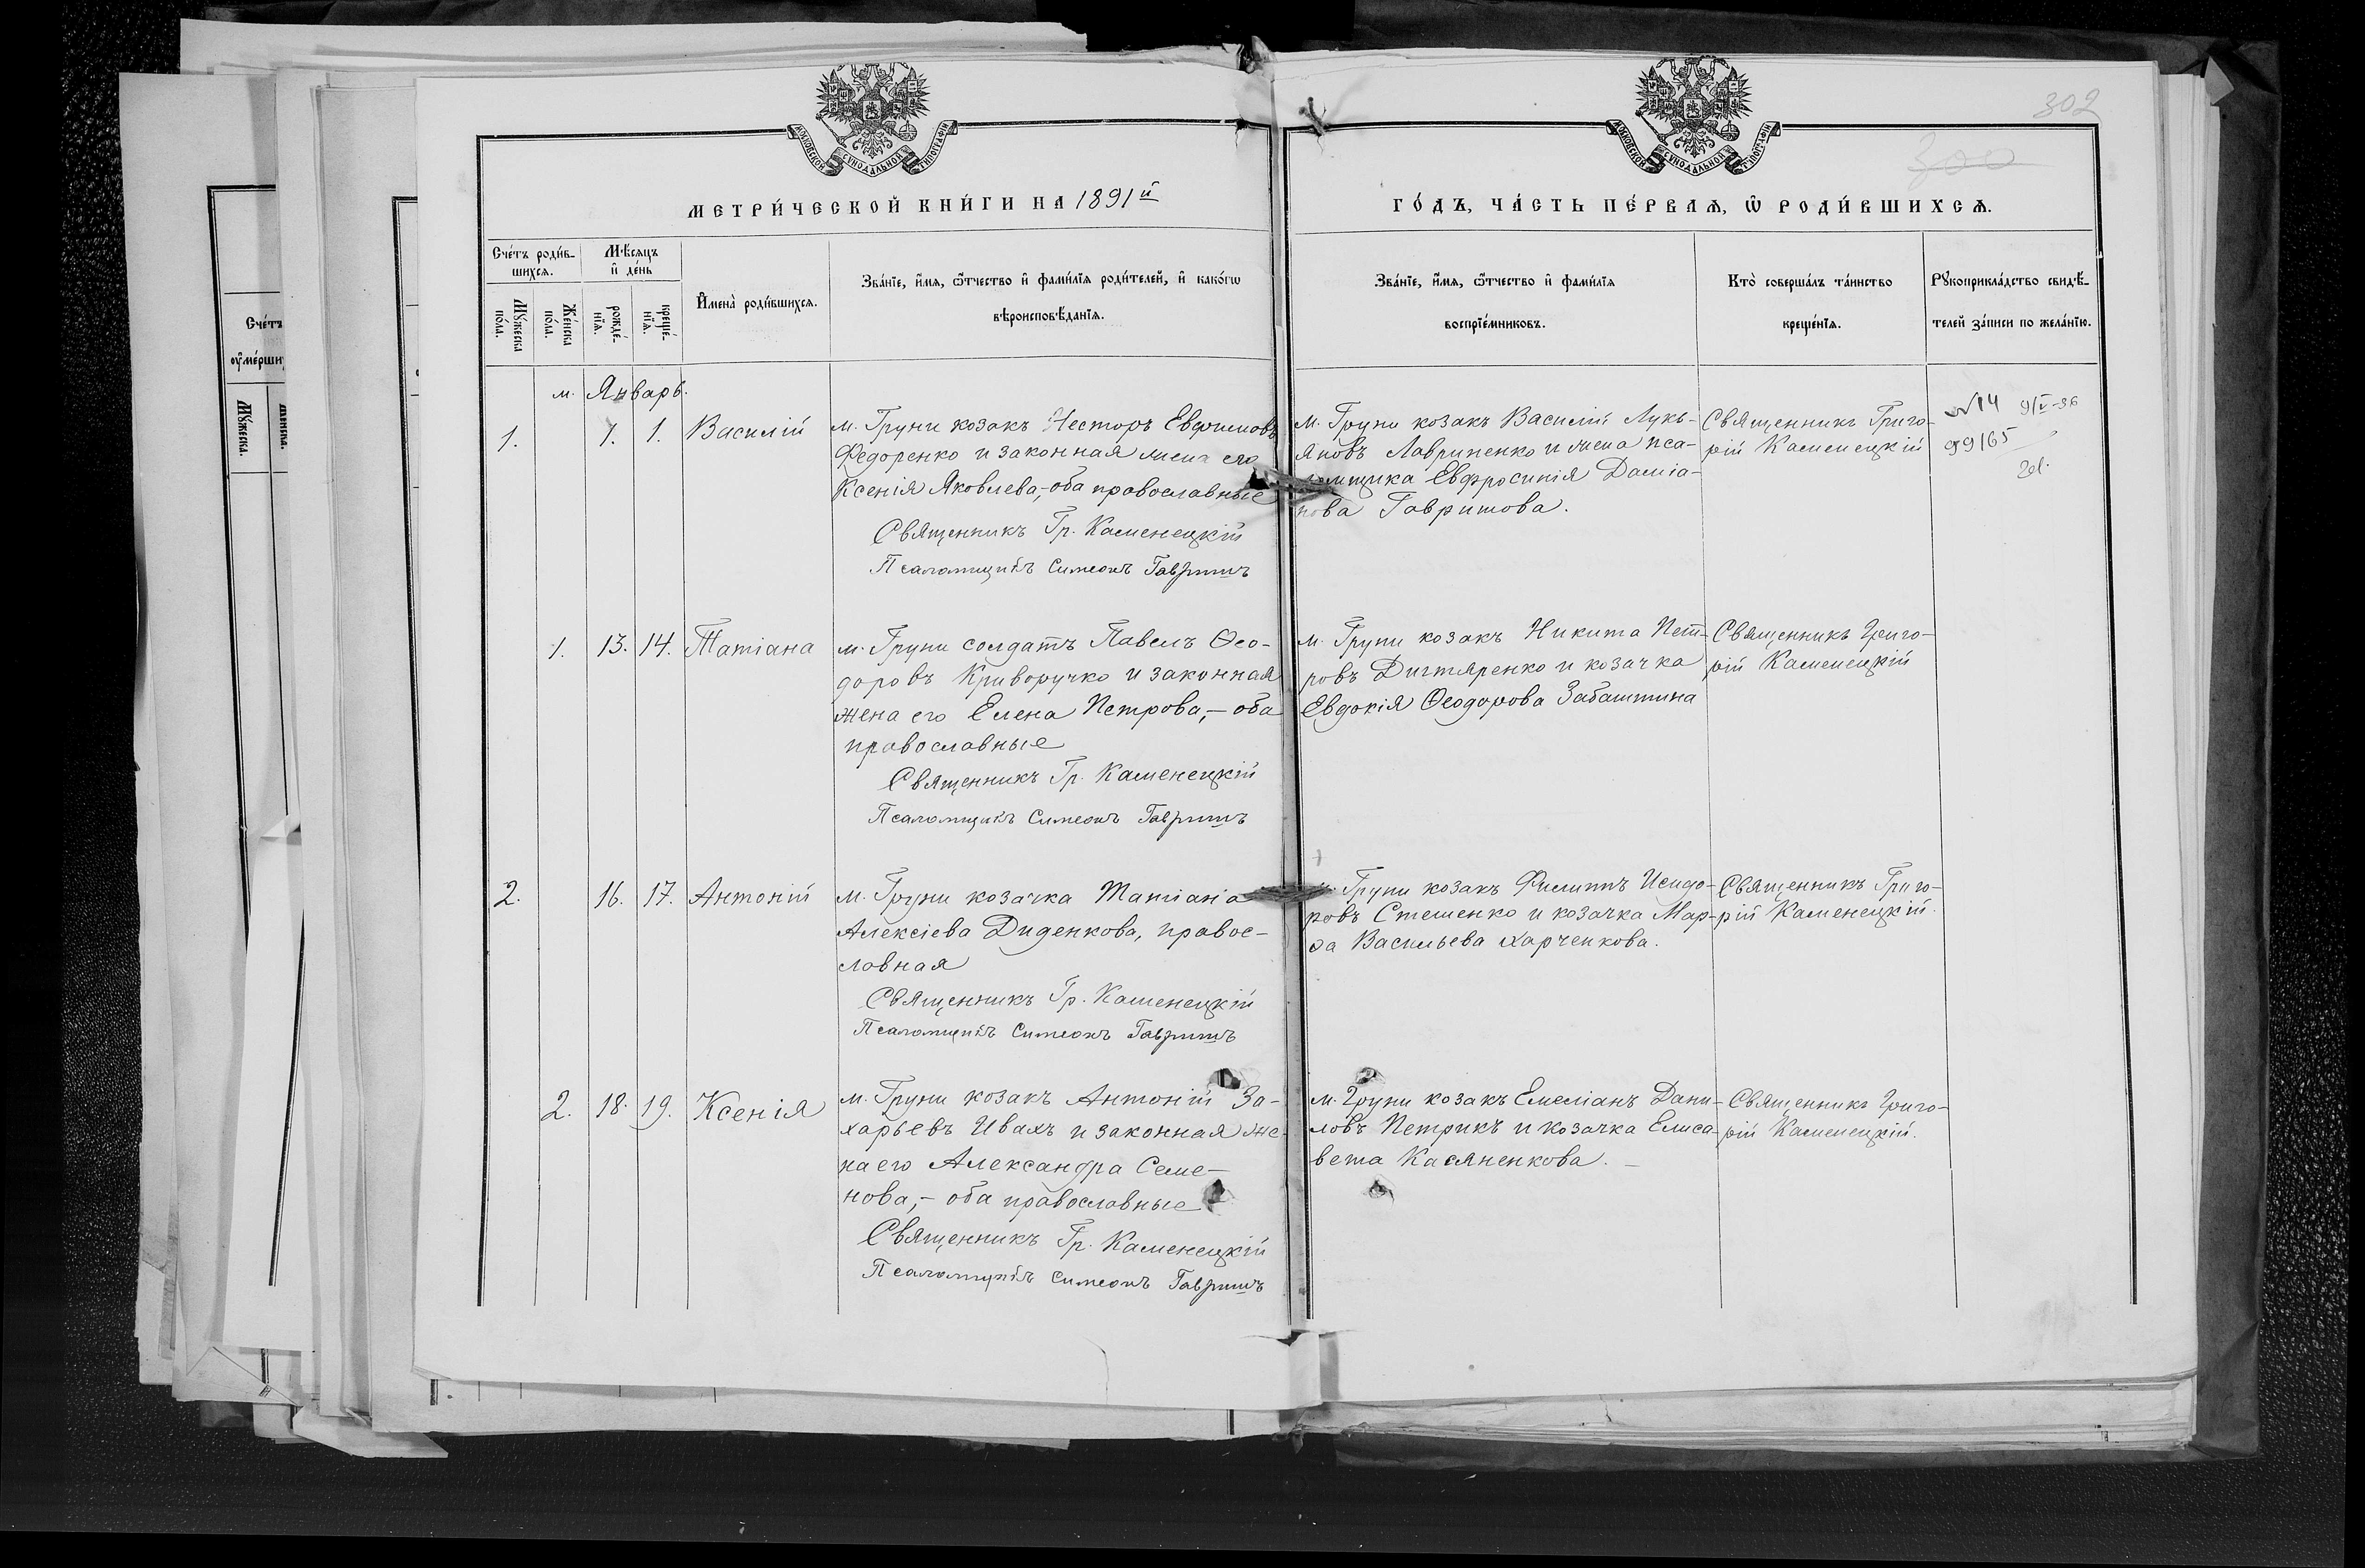 302
300
МОСКОВСКОЙ СѴНОДАЛЬНОЙ ТИПОГРАФІИ
МОСКОВСКОЙ СѴНОДАЛЬНОЙ ТИПОГРАФІИ
МЕТРИ́ЧЕСКОЙ КНИ́ГИ НА 1891й
ГО́ДЪ, ЧА́СТЬ ПЕ́РВАѦ, Ѿ РОДИ́ВШИХСѦ.
Сче́тъ роди́в-
шихсѧ.
Мѣ́сѧцъ
и҆ де́нь
Мꙋ́жеска
по́ла.
Же́нска
по́ла.
рожде́-
нїѧ.
креще́-
нїѧ.
И҆мена̀ роди́вшихсѧ.
Зва́нїе, и҆́мѧ, ѻ҆́тчество и҆ фами́лїѧ роди́телей, и҆ како́гѡ
вѣроисповѣ́данїѧ.
Зва́нїе, и҆́мѧ, ѻ҆́тчество и҆ фами́лїѧ
воспрїе́мниковъ.
Кто̀ соверша́лъ та́инство
креще́нїѧ.
Рꙋкоприкла́дство свидѣ́-
телей за́писи по жела́нїю.
Сче́тъ
оу҆ме́рших
Мꙋ́жеска.
Же́нска.
м. Январь.
1. 1. 1. Василій
м. Груни козакъ Несторъ Евфимовъ
Федоренко и законная жена его
Ксенія Яковлева,-оба православные
Священникъ Гр. Каменецкій
Псаломщикъ Симеонъ Гавришъ
м. Груни козакъ Василій Лукь-
яновъ Лавриненко и жена пса-
ломщика Евфросинія Даміа-
нова Гавришова.
Священникъ Григо-
рій Каменецкій
№14 9/V-36
99165
1. 13. 14. Татіана
м. Груни солдатъ Павелъ Ѳео-
доровъ Криворучко и законная
жена его Елена Петрова,- оба
православные
Священникъ Гр. Каменецкій
Псаломщикъ Симеонъ Гавришъ
м. Груни козакъ Никита Пет-
ровъ Дигтяренко и козачка
Евдокія Ѳеодорова Забаштина
Священникъ Григо-
рій Каменецкій
2. 16. 17. Антоній
м. Груни козачка Татіана
Алексіева Диденкова, правос-
лавная
Священникъ Гр. Каменецкій
Псаломщикъ Симеонъ Гавришъ
м. Груни козакъ Филиппъ Исидо-
ровъ Стешенко и козачка Мар-
ѳа Васильева Харченкова.
Священникъ Григо-
рій Каменецкій.
2. 18. 19. Ксенія
м. Груни козакъ Антоній За-
харьевъ Ивахъ и законная же-
на его Александра Семе-
нова,- оба православные
Священникъ Гр. Каменецкій
Псаломщикъ Симеонъ Гавришъ
м. Груни козакъ Емеліанъ Дани-
ловъ Петрикъ и козачка Елиса-
вета Касяненкова.
Священникъ Григо-
рій Каменецкій.